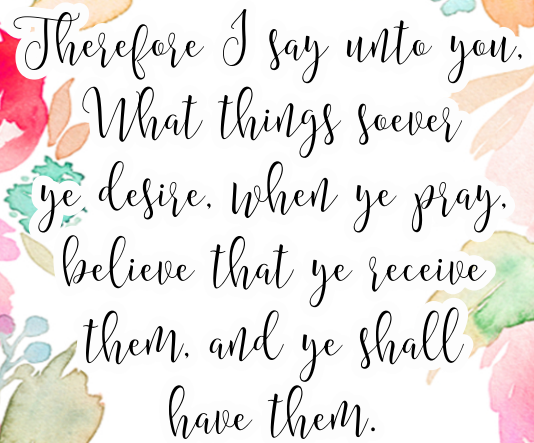 Therefore I say unto you,
What things soever
ye desire, when ye pray,
believe that ye receive
them, and ye shall
have them.